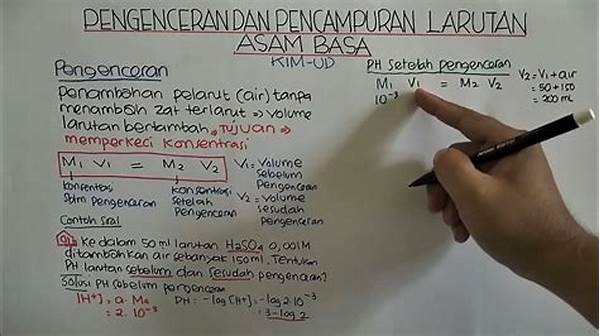 PENGENCERAN DAN PENCAMPURAN LARUTAN
ASAM BASA
KIM-UD
Pengenceran
Penambahan pelarut (air) tanpa
menambah zat terlarut => volume
larutan bertambah => Tujuan =>
memperkecil konsentrasi
M1 V1 = M2 V2
konsentrasi
sblm pengenceran
konsentrasi
setelah
pengenceran
V1 = Volume
sebelum
Pengenceran
V2 = volume
sesudah
pengenceran
Contoh Soal
Ke dalam 50 ml larutan H2SO4 0,001M
ditambahkan air sebanyak 150ml. Tentukan
PH larutan sebelum dan sesudah pengenceran?
Solusi PH sebelum pengenceran
[H+] = a. Ma
= 2. 10⁻³
PH = -log [H+] = -log 2. 10⁻³
= 3 - log 2
PH setelah pengenceran
M1 V1 = M2 V2
10⁻³
V2 = V1 + air
= 50 + 150
= 200 mL